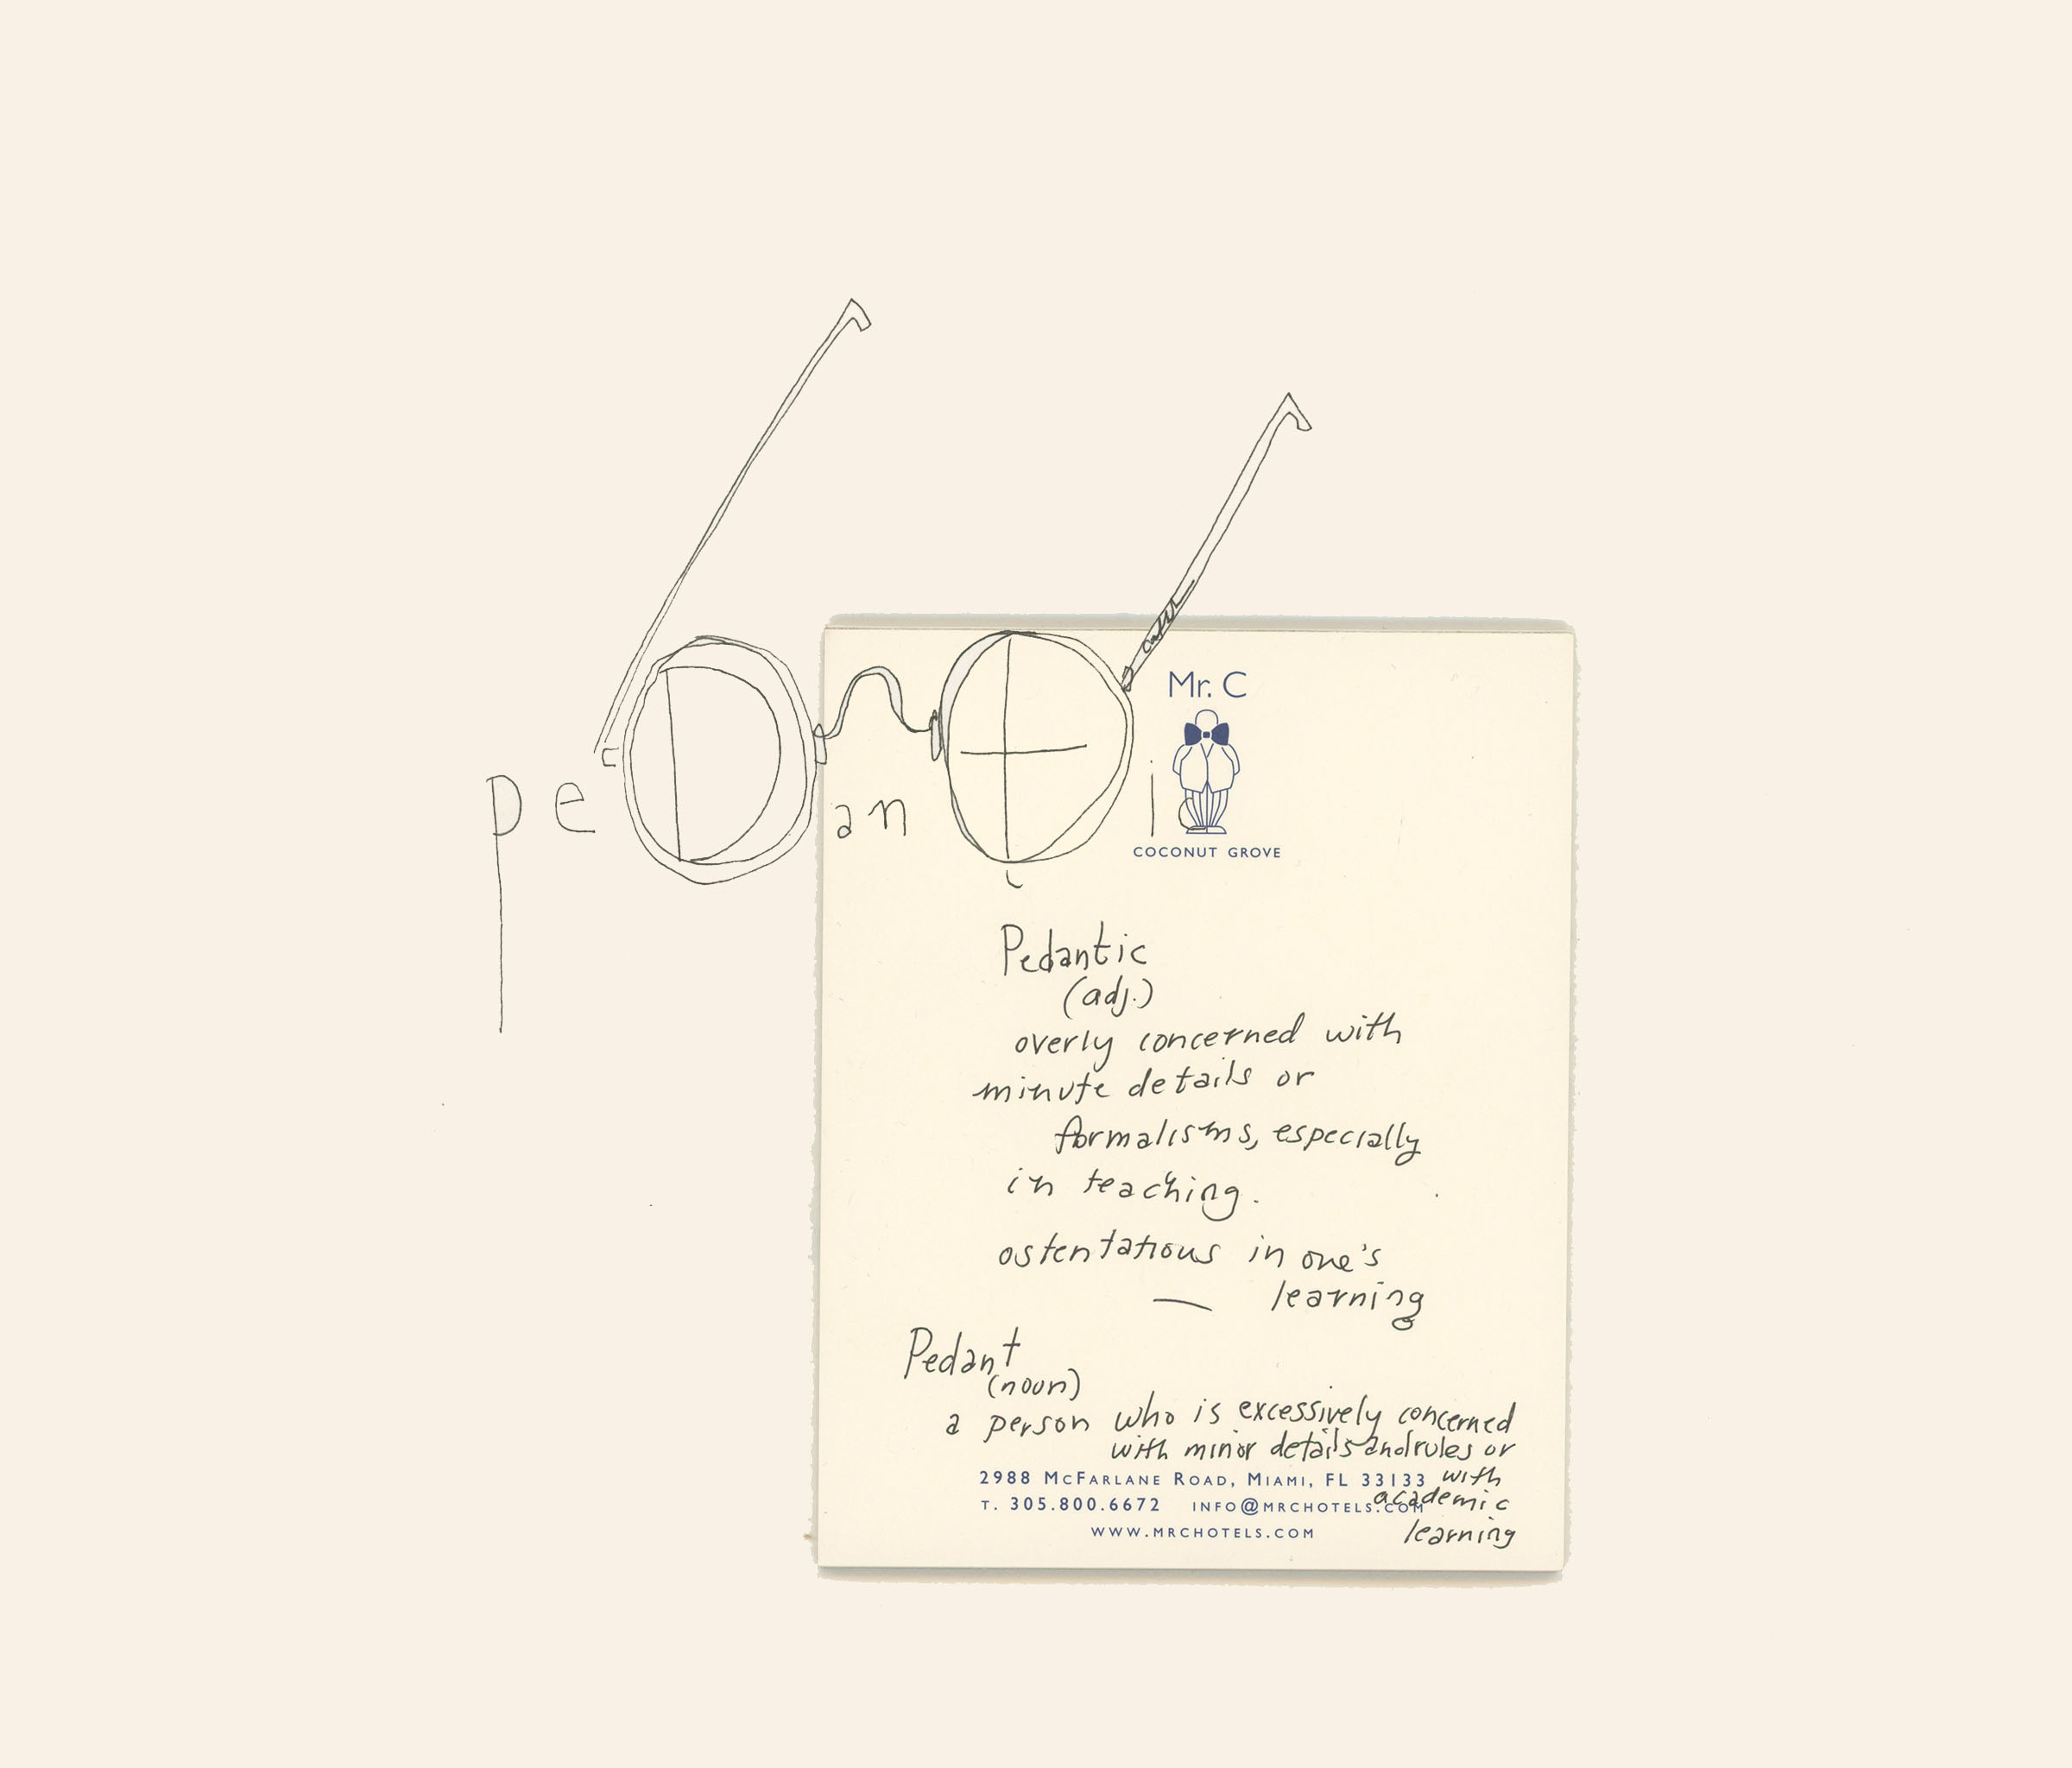 Mr. C
peDantic
COCONUT GROVE
Pedantic
(adj.)
overly concerned with
minute details or
formalisms, especially
in teaching.
ostentatious in one's
— learning
Pedant
(noun)
a person who is excessively concerned
with minor details and rules or
with
academic
learning
2988 McFarlane Road, Miami, FL 33133
T. 305.800.6672 INFO@MRCHOTELS.COM
WWW.MRCHOTELS.COM